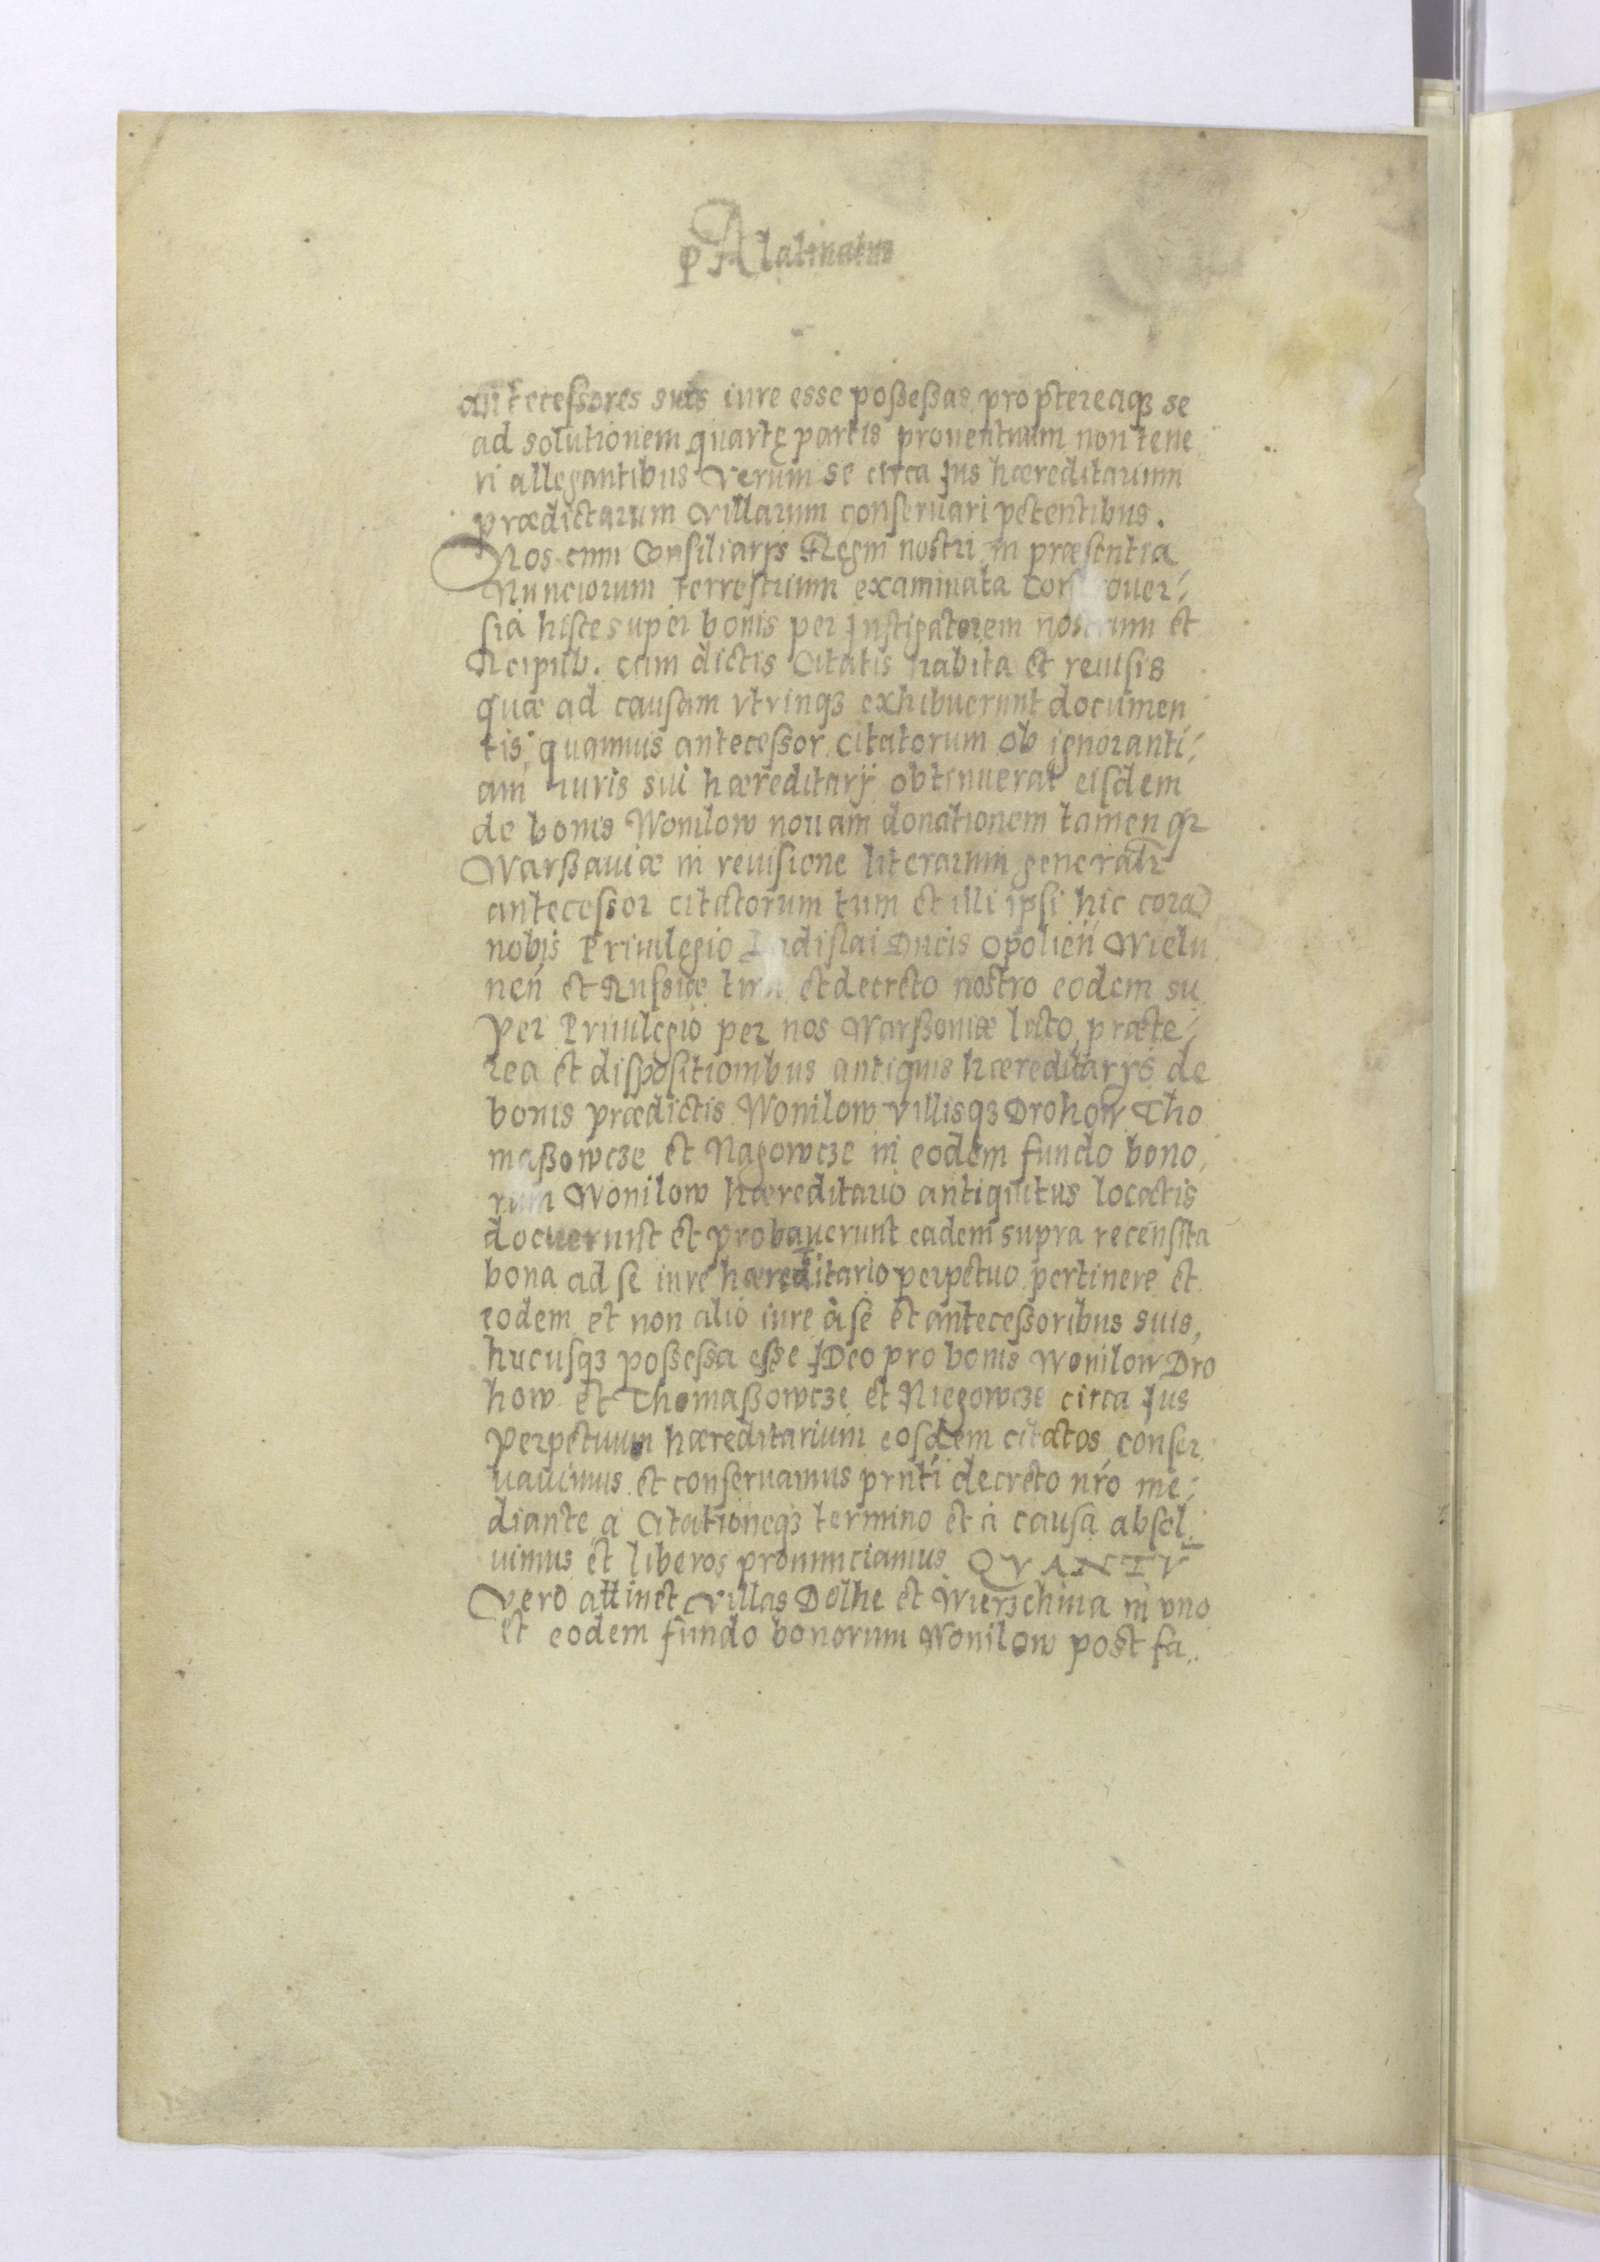 pAlatinatus
antecessores suos iure esse poßeßas, proptereaqꝫ se
ad solutionem quartę partis prouentuum non tene
ri allegantibus Verum se circa Jus hæreditarium
prædictarum villarum conseruari petentibus.
Nos cum Consiliarijs Regni nostri in præsentia
Nunciorum terrestrium examinata Controuer/
sia hisce super bonis per Instigatorem nostrum et
Reipub. cum dictis Citatis habita et reuisis
quæ ad causam vtrinqꝫ exhibuerunt documen
tis, quamuis anteceßor citatorum ob ignoranti/
am iuris sui hæreditarij obtinuerat eisdem
de bonis Wonilow nouam donationem tamen qr
Warßauiæ in reuisione literarum generali
antecessor citatorum tum et illi ipsi hic corā
nobis Priuilegio Ladislai Ducis Opolień Wielu
neń et Russiæ tum et decreto nostro eodem su
per Priuilegio per nos Warßouiæ lato, præte/
rea et dispositionibus antiquis hæreditarijs de
bonis prædictis Wonilow villisqꝫ Drohow Tho
maßowcze et Nagowcze in eodem fundo bono,
rum Wonilow hæreditario antiquitus locatis
docuerunt et probauerunt eadem supra recensita
bona ad se iure hæreditario perpetuo pertinere et
eodem et non alio iure à se et anteceßoribus suis,
hucusqꝫ poßeßa eße IDeo pro bonis Wonilow Dro
how et Thomaßowcze et Niegowcze circa Jus
perpetuum hæreditarium eosdem citatos conser
uauimus et conseruamus prnti decreto nŕo me/
diante a Citationeqꝫ termino et à causa absol
uimus et liberos pronunciamus QVANTV̄
Vero attinet Villas Dolhe et Wierzchnia in vno
et eodem fundo bonorum Wonilow post fa..